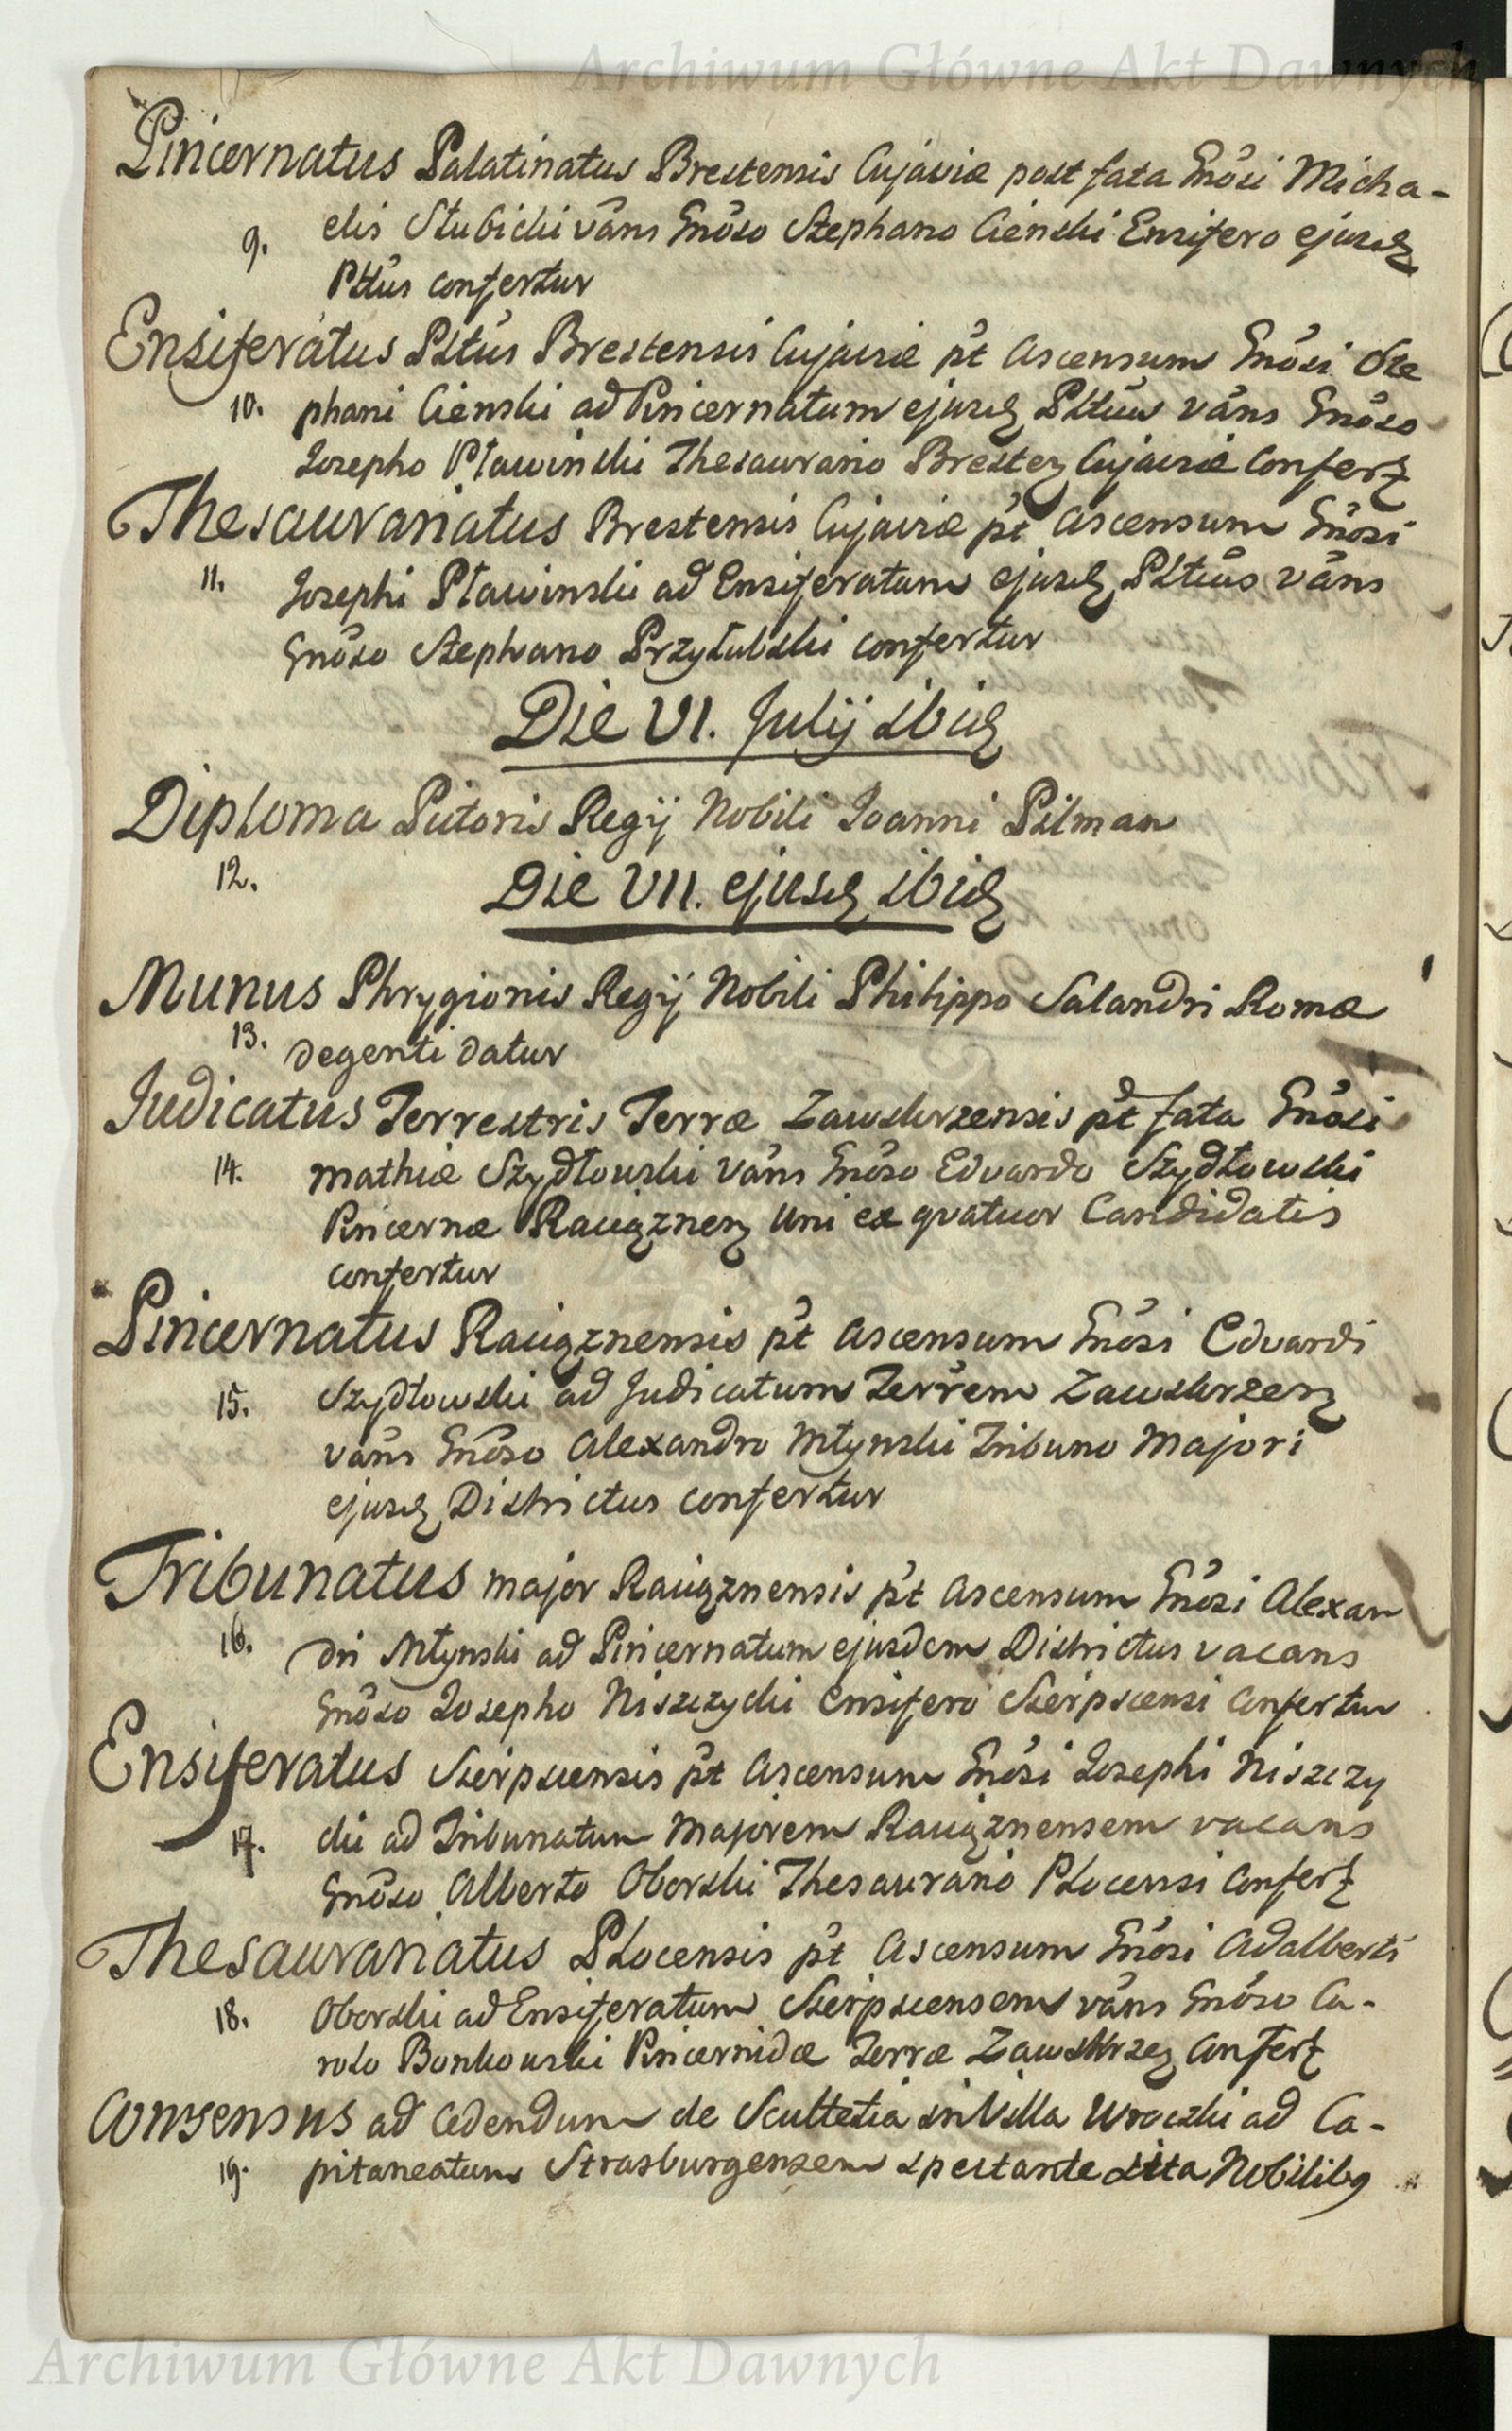 Archiwum Główne Akt Dawnych
Pincernatus Palatinatus Brestensis Cujaviæ post fata Gnõsi Micha-
9. elis Stubicki vãns Gnõso Stephano Cienski Ensifero ejusdꝫ
Pttũs confertur
Ensiferatus Pltũs Brestensis Cujaviæ p̃t ascensum Gnõsi Ste
10. phani Cienski ad Pincernatum ejusdꝫ Pltũs vãns Gnõso
Josepho Pławinski Thesaurario Bresteꝫ Cujaviæ Confertꝫ
Thesaurariatus Brestensis Cujaviæ p̃t ascensum Gnõsi
11. Josephi Pławinski ad Ensiferatum ejusdꝫ Pltũs vãns
Gnõso Stephano Przyłubski confertur
Die VI. Julij ibidꝫ
Diploma Pictoris Regij Nobili Joanni Pilman
12.
Die VII. ejusdꝫ ibidꝫ
Munus Phrygionis Regij Nobili Philippo Salandri Romæ
13. degenti datur
Judicatus Terrestris Terræ Zawskrzensis p̃t fata Gnõsi
14. Mathiæ Szydłowski vãns Gnõso Edvardo Szydłowski
Pincernæ Raciązneꝫ uni ex quatuor Candidatis
confertur
Pincernatus Raciąznensis p̃t ascensum Gnõsi Edvardi
15. Szydłowski ad Judicatum Terrem Zawskrzeꝫ
vãns Gnõso Alexandro Młynski Tribuno Majori
ejusdꝫ Districtus confertur
Tribunatus major Raciąznensis p̃t ascensum Gnõsi Alexan
16. dri Młynski ad Pincernatum ejusdem Districtus vacans
Gnõso Josepho Niszczycki Ensifero Sierpscensi confertur
Ensiferatus Sierpscensis p̃t ascensum Gnõsi Josephi Niszczy
17. cki ad Tribunatum Majorem Raciąznensem vacans
Gnõso Alberto Oborski Thesaurario Plocensi Confertꝫ
Thesaurariatus Plocensis p̃t ascensum Gnõsi Adalberti
18. Oborski ad Ensiferatum Sierpscensem vãns Gnõso Ca-
rolo Bonkowski Pincernidæ Terræ Zawskrzeꝫ Confertꝫ
Consensus ad cedendum de Scultetia in Villa Wroczki ad Ca-
19. pitaneatum Strasburgensem spectante sita Nobilibꝯ
Archiwum Główne Akt Dawnych